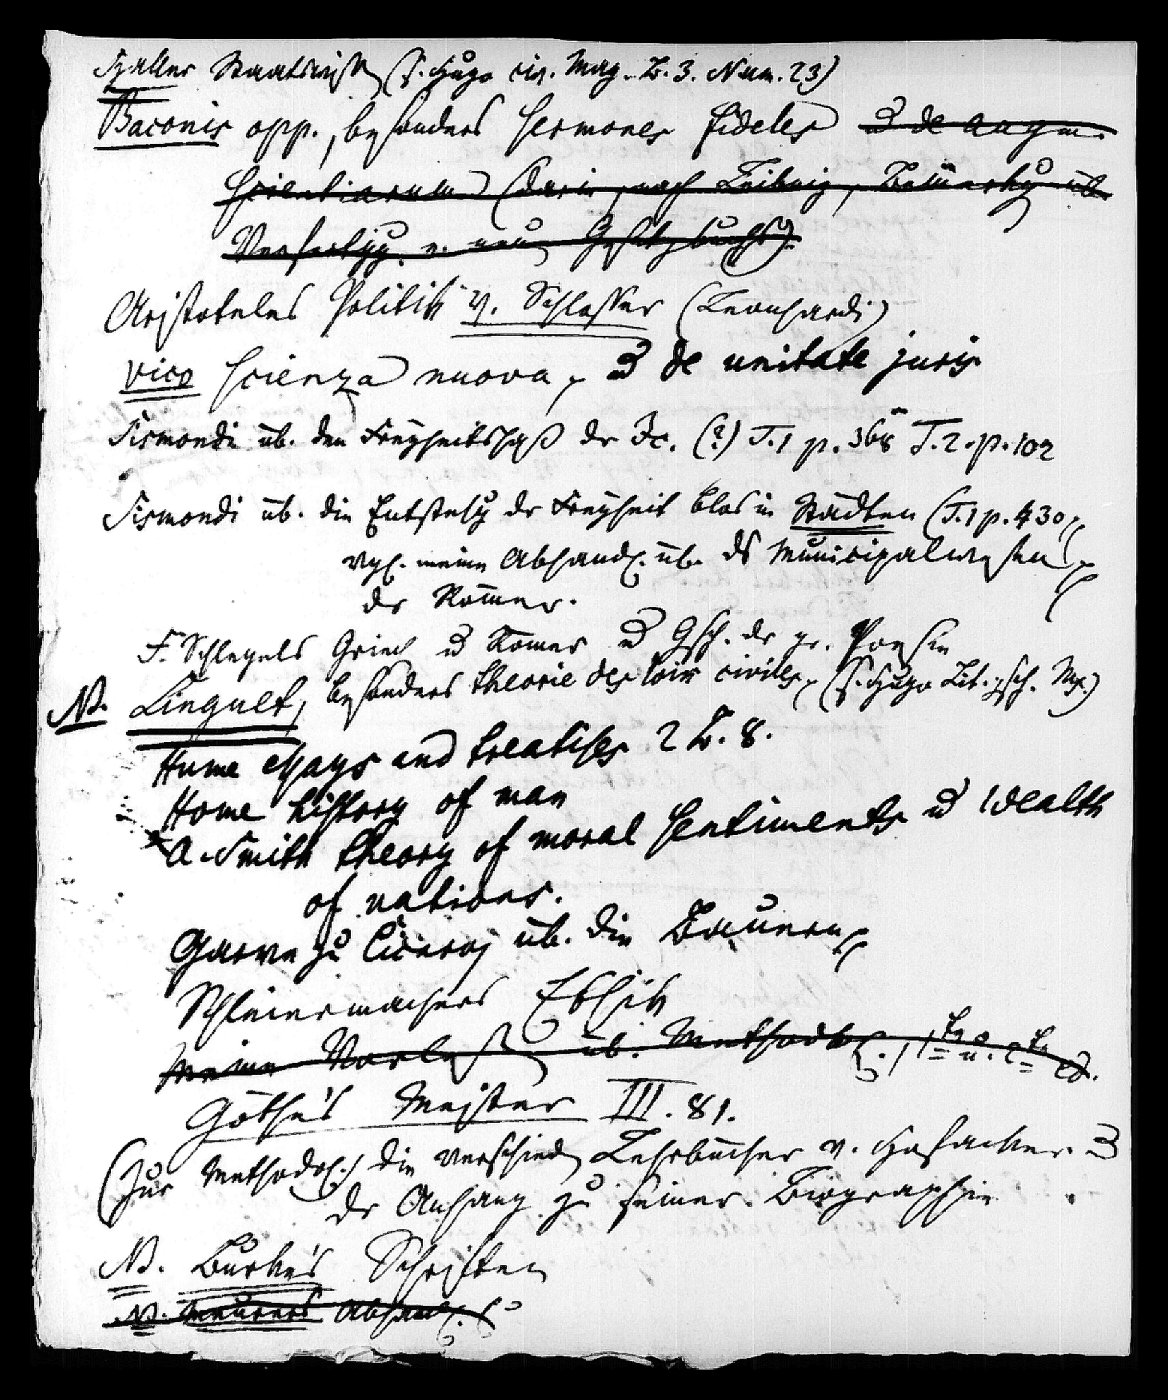 Haller Staatswiss. (s. Hugo civ. Mag. B. 3. Num. 23)
Baconis opp., besonders sermones fideles de augm.
scientiarum (darin, nach Leibniz, Bemerkg üb.
Verfertigg. e. neuen Gesetzbuchs).
Aristoteles Politik v. Schlosser (Leonhardi)
Vico scienza nuova, de unitate juris
Sismondi üb. den Freyheitshaß der Ic. (?) T. 1 p. 368 T. 2. p. 102
Sismondi üb. die Entstehg der Freyheit blos in Städten (T. 1 p. 430,
vgl. meine Abhandl. üb. ds Municipalwesen
der Römer.
F. Schlegels Griech u Römer u Gsch. der gr. Poesie
NB. Linguet, besonders theorie des loix civiles, (s. Hugo Lit. gsch.
Hume essays and treatises 2 B. 8.
Home history of man
A. Smith theory of moral sentiments u Wealth
of nations.
Garve zu Cicero, üb. die Bauern,
Schleiermachers Ethik
Meine Vorless üb. Methodol., 1te u. 2te
Göthe's Meister III. 81.
(Zur Methodol.) die verschied. Lehrbücher v. Hofacker
der Anhang zu seiner Biographie
NB. Burke's Schriften
NB. Meurers Abhandl.